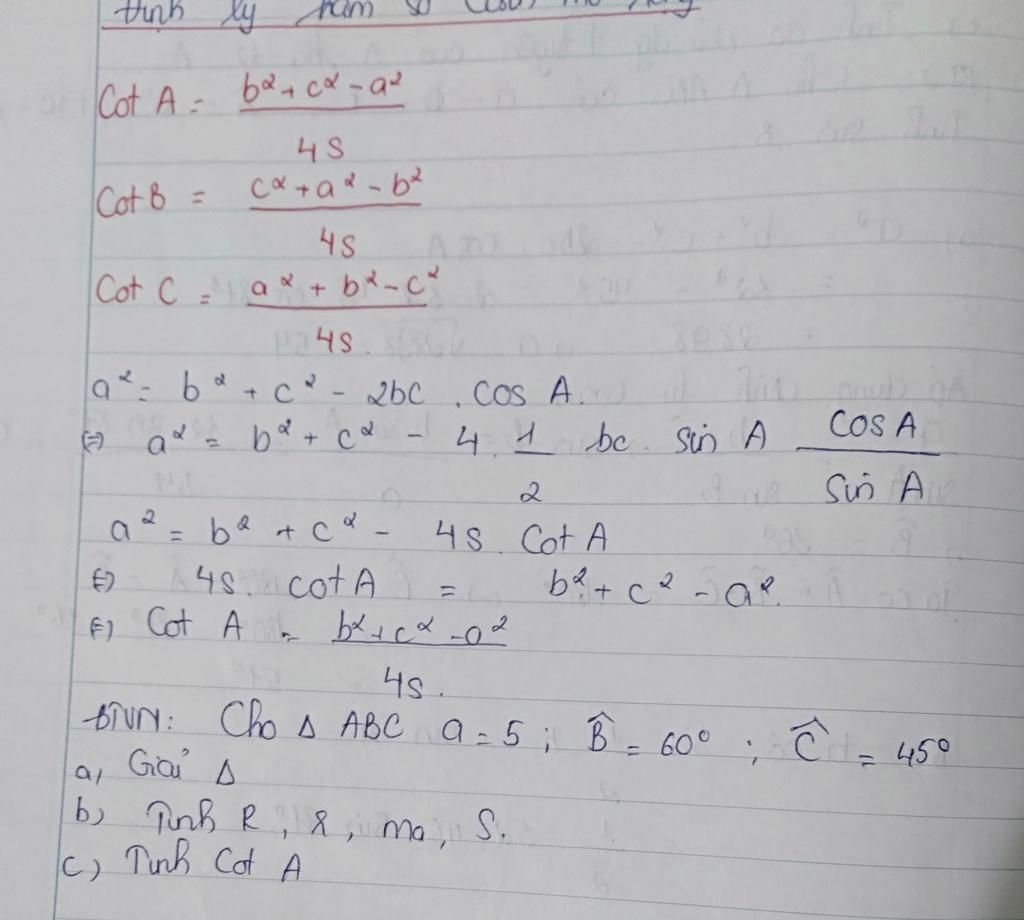 định lý hàm số
Cot A = b² + c² - a² / 4S
Cot B = c² + a² - b² / 4S
Cot C = a² + b² - c² / 4S.
a² = b² + c² - 2bc . cos A.
⇔ a² = b² + c² - 4 . 1/2 bc . sin A cos A / sin A
a² = b² + c² - 4S . Cot A
⇔ 4S . cot A = b² + c² - a².
⇔ Cot A = b² + c² - a² / 4S.
BTVN: Cho Δ ABC a = 5 ; B̂ = 60° ; Ĉ = 45°
a, Giải Δ
b) Tính R, r, ma, S.
c) Tính Cot A